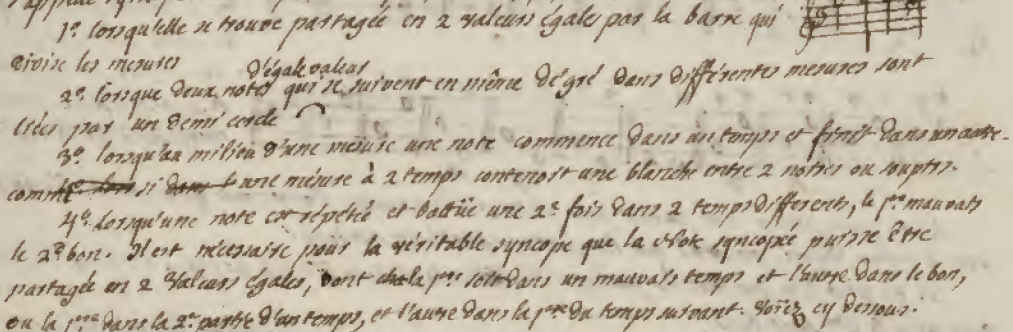 1º. lorsqu'elle se trouve partagée en 2 valeurs égales par la barre qui
divise les mesures
d'égale valeur
2º. lorsque deux notes qui se suivent en même dégré dans différentes mesures sont
liées par un demi cercle
3º. lorsqu'au milieu d'une mesure une note commence dans un temps et finit dans un autre.
comme si une mesure à 2 temps contenoit une blanche entre 2 noires ou soupirs.
4º. Lorsqu'une note est répétée et battüe une 2e fois dans 2 temps differents, le 1er mauvais
le 2e bon. Il est nécessaire pour la véritable syncope que la Note syncopée puisse être
partagée en 2 Valeurs égales, dont la 1ere soit dans un mauvais temps et l'autre dans le bon,
ou la 1ere dans la 2e partie d'un temps, et l'autre dans la 1ere du temps suivant. Voiez cy dessous.